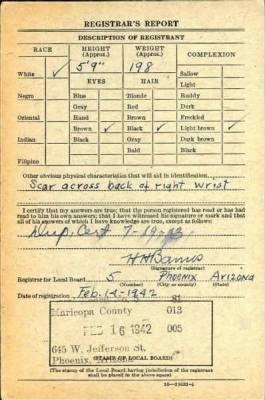 REGISTRAR'S REPORT
DESCRIPTION OF REGISTRANT
RACE HEIGHT (Approx.) WEIGHT (Approx.) COMPLEXION
5'9" 198
White ✓ EYES HAIR Sallow
Light
Negro Blue Blonde Ruddy
Gray Red Dark
Oriental Hazel Brown Freckled
Brown ✓ Black ✓ Light brown ✓
Indian Black Gray Dark brown
Bald Black
Filipino
Other obvious physical characteristics that will aid in identification
Scar across back of right wrist
I certify that my answers are true; that the person registered has read or has had
read to him his own answers; that I have witnessed his signature or mark and that
all of his answers of which I have knowledge are true, except as follows:
Dup. Cert 7-19-43
(Signature of registrar)
Registrar for Local Board 5 Phoenix Arizona
(Number) (City or county) (State)
Date of registration Feb. 14-1942
Maricopa County 013
FEB 16 1942 005
645 W. Jefferson St.
Phoenix,
(STAMP OF LOCAL BOARD)
(The stamp of the Local Board having jurisdiction of the registrant
shall be placed in the above space.)